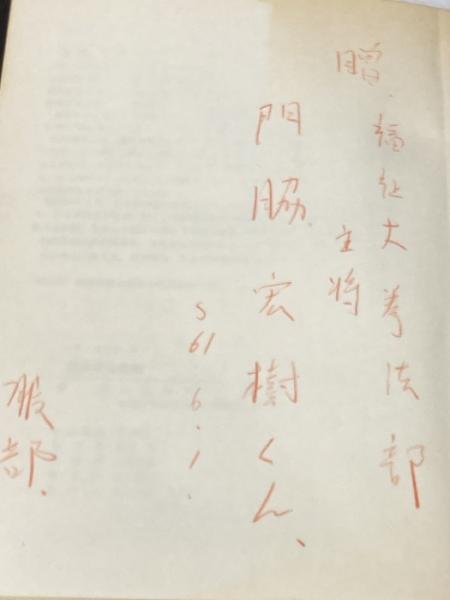 贈 福祉大拳法部
主将
門脇宏樹くん、
S61 6.1.
服部.